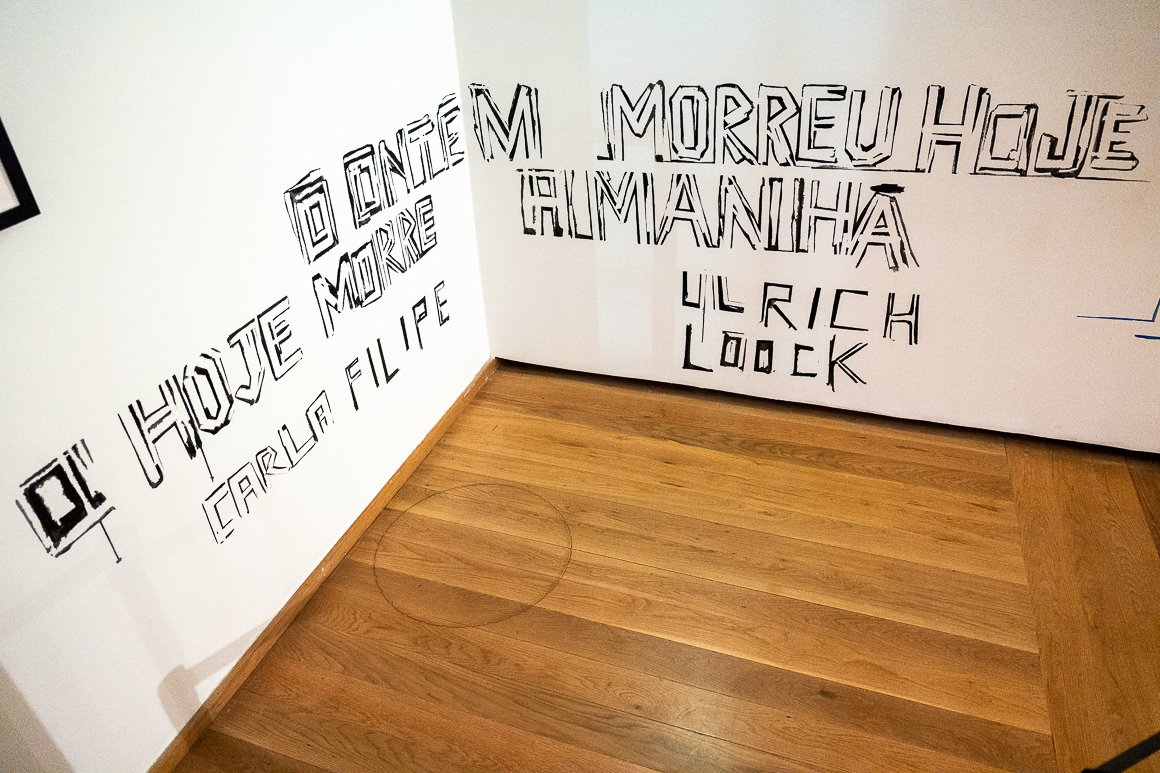 O ONTEM MORREU HOJE
O HOJE MORRE AMANHÃ
CARLA FILIPE
ULRICH
LOOCK